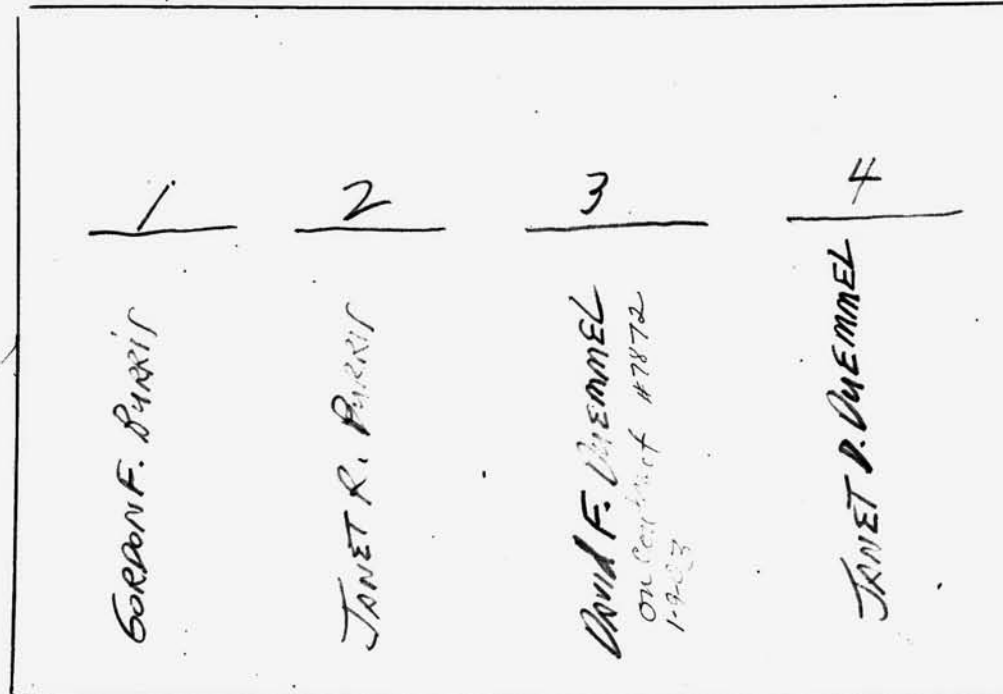 1
2
3
4
GORDON F. BURRIS
JANET R. BURRIS
DAVID F. DUEMMEL
on contract #7872
1-9-03
JANET D. DUEMMEL